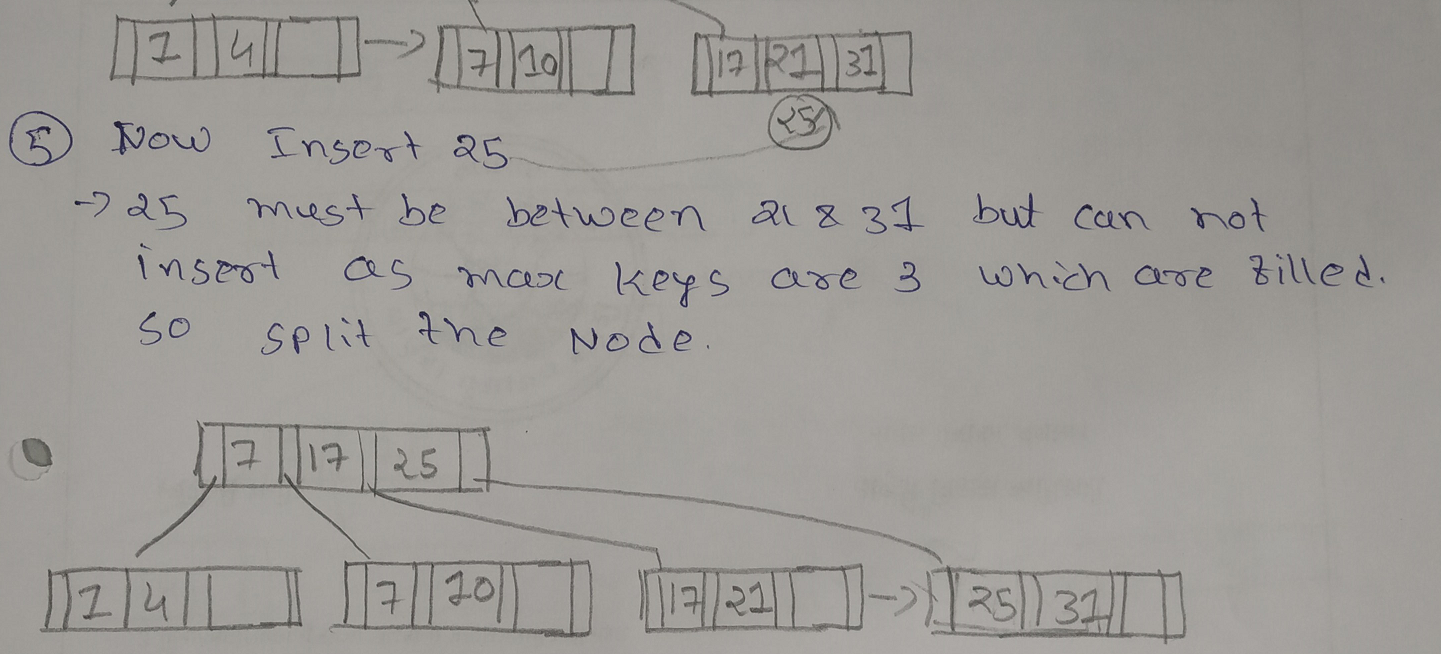 1 4 → 7 10 17 21 31
25
⑤ Now Insert 25
→ 25 must be between 21 & 31 but can not
insert as max keys are 3 which are filled.
so split the Node.
7 17 25
1 4 7 10 17 21 → 25 31